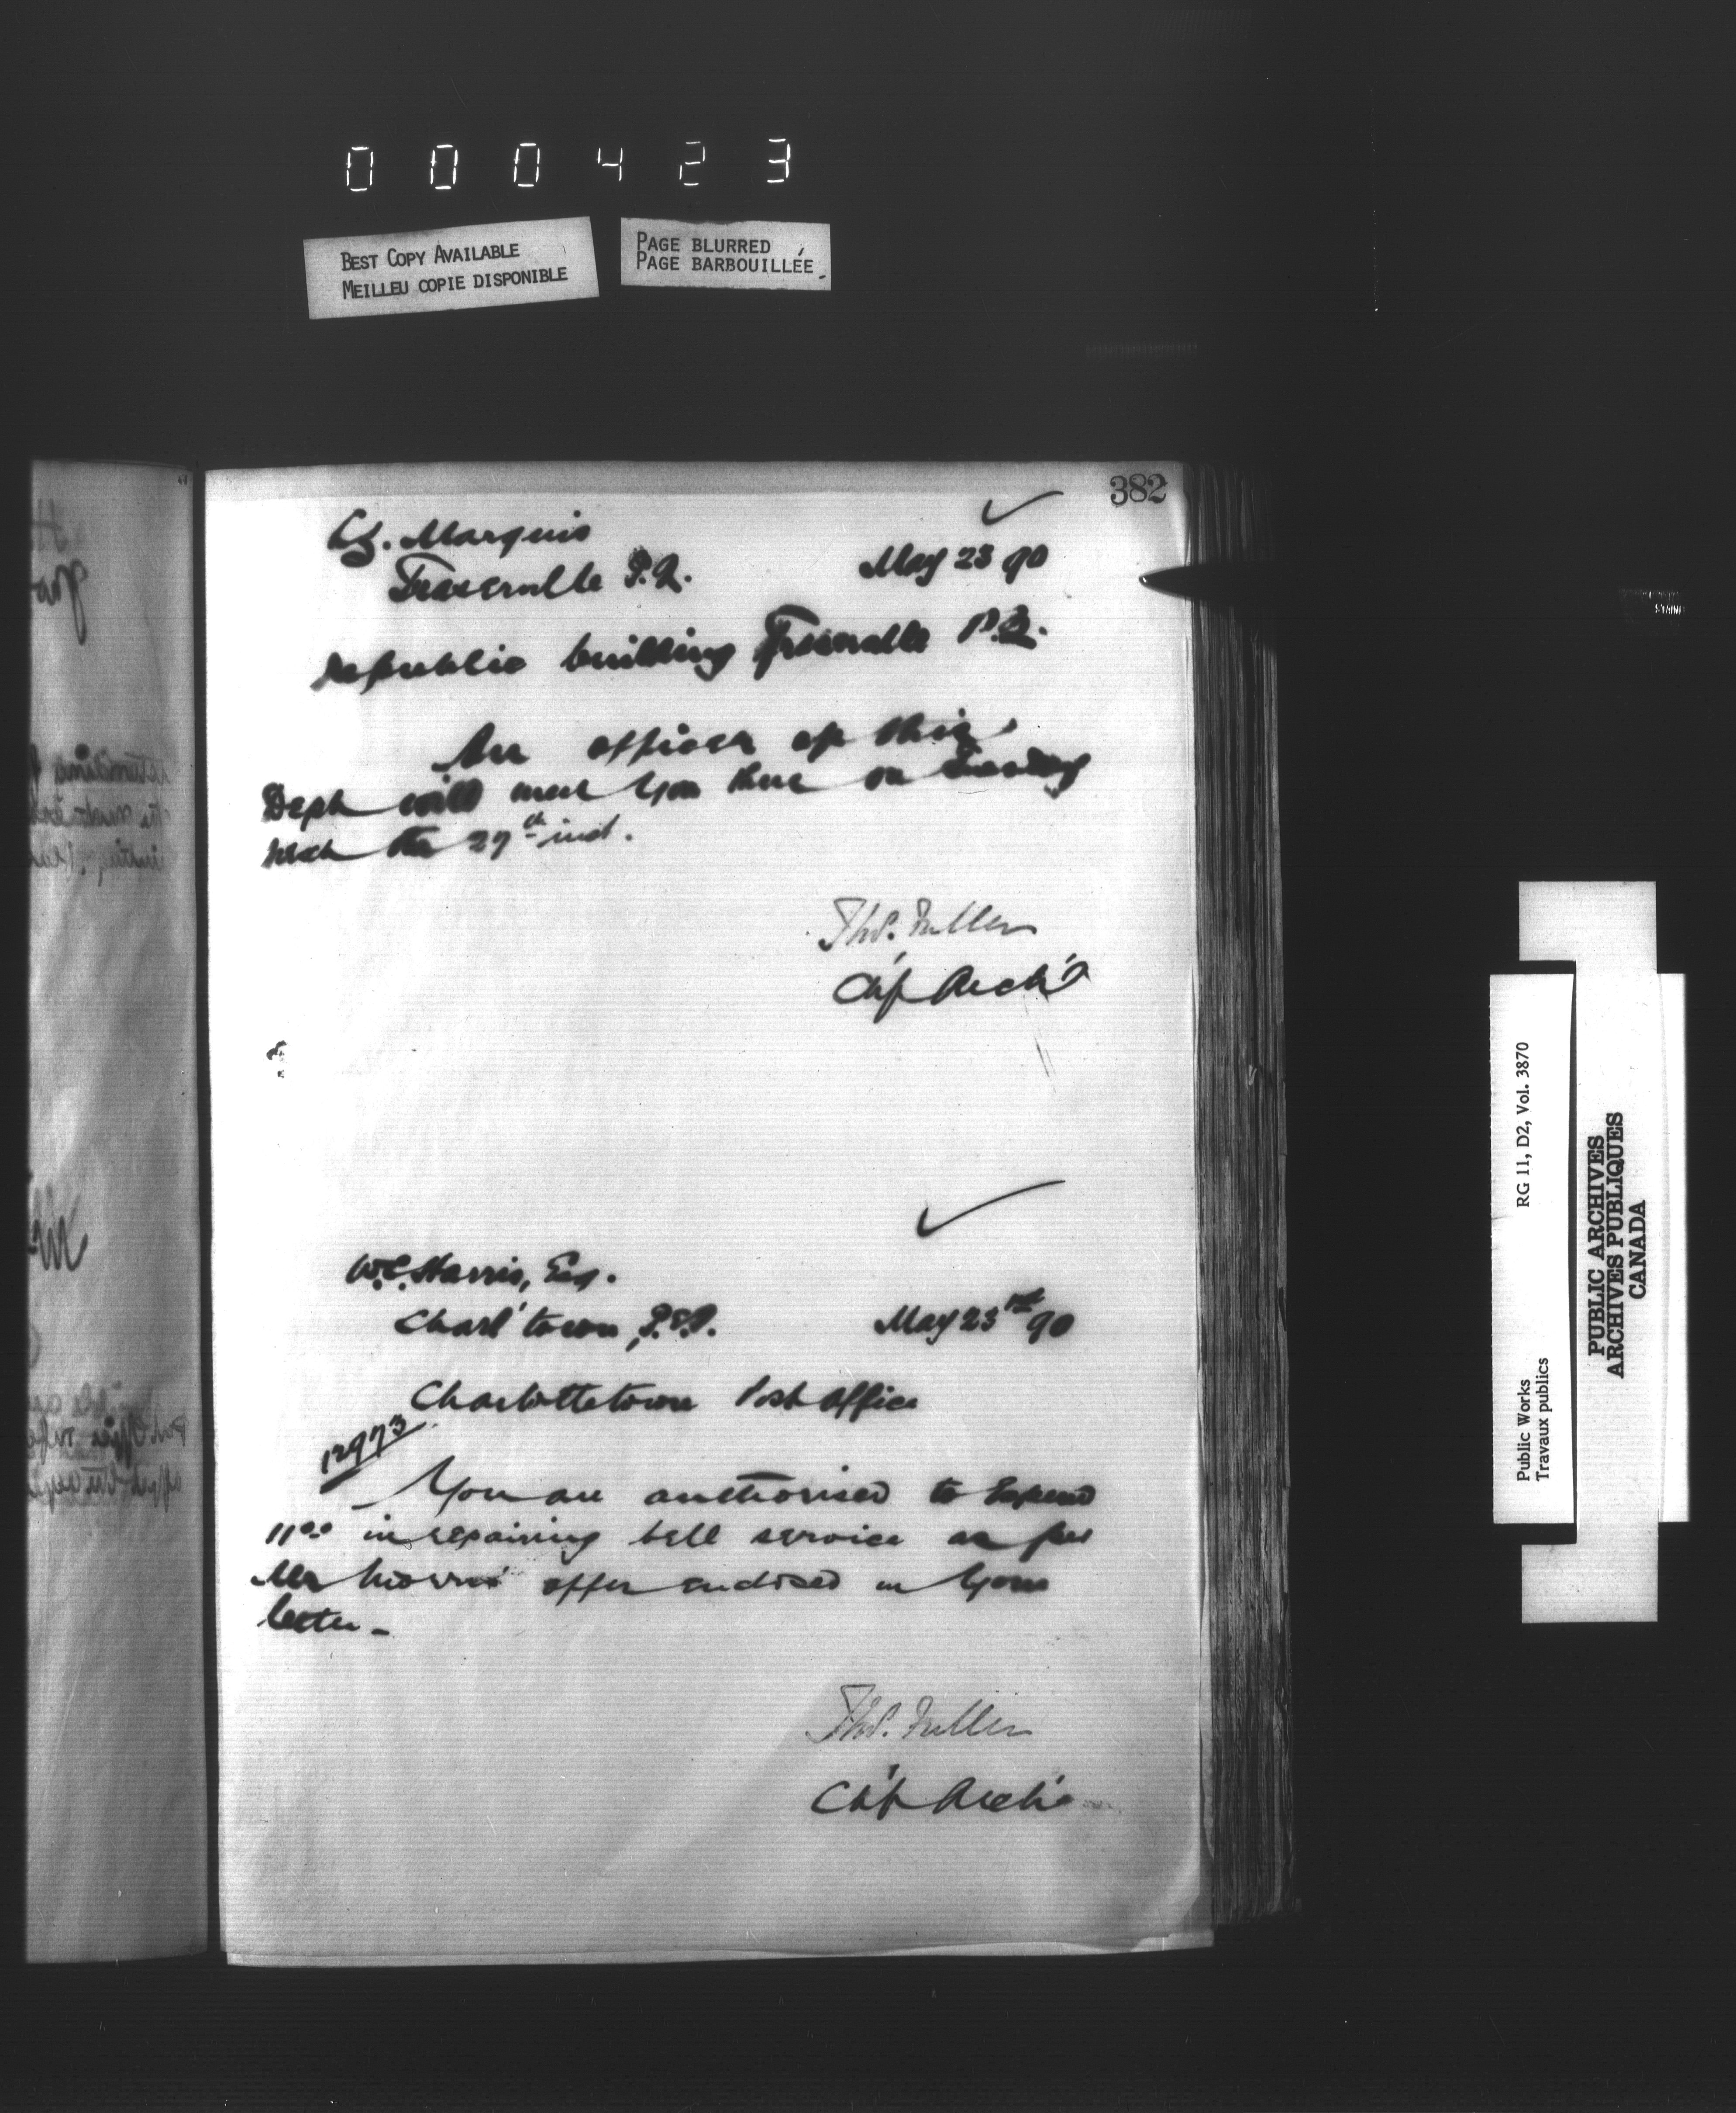 000423
BEST COPY AVAILABLE
MEILLEU COPIE DISPONIBLE
PAGE BLURRED
PAGE BARBOUILLÉE
382
Marquis
Fraserville P.Q.
May 23 90
Republic building Fraserville P.Q.
An officer of this
Dept will meet you there on Tuesday
next the 27th inst.
Thos. Fuller
Ch'f Arch't
W.C. Harris, Esq.
Charl'town, P.E.I.
May 23rd 90
Charlottetown Post Office
12973
You are authorised to Expend
11.00 in repairing bell service as per
Mr offer enclosed in your
letter -
Thos. Fuller
Ch'f Arch't
Public Works
Travaux publics
RG 11, D2, Vol. 3870
PUBLIC ARCHIVES
ARCHIVES PUBLIQUES
CANADA